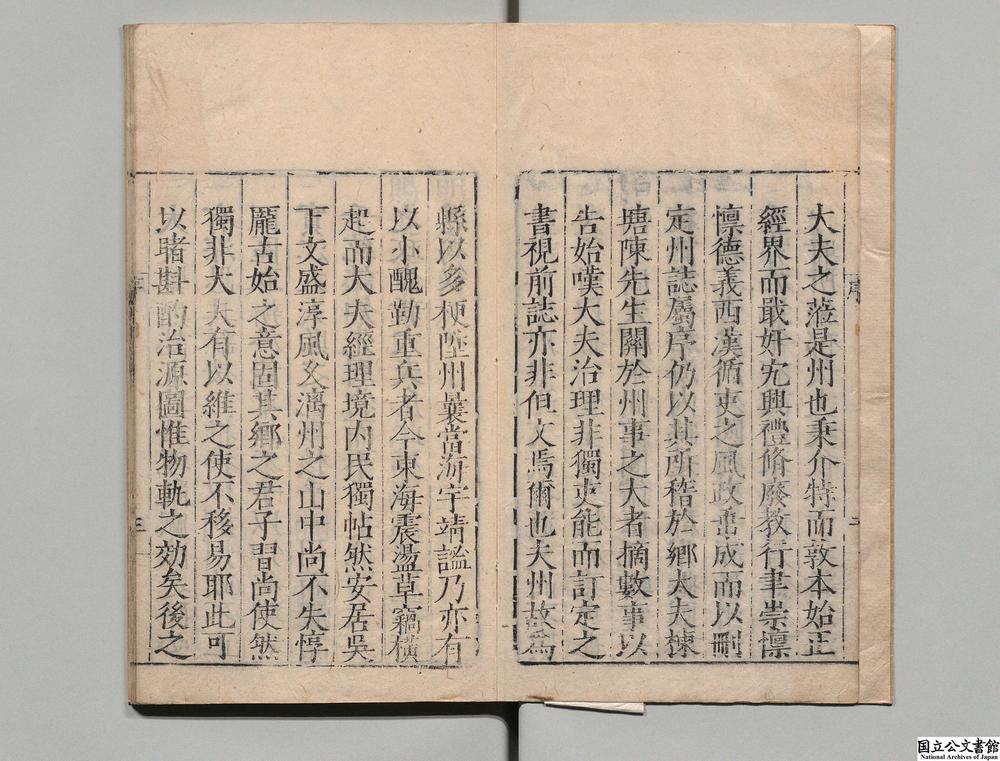 大夫之蒞是州也秉介特而敦本始正
經界而戢奸宄興禮脩廢教行聿崇懍
懍德義西漢循吏之風政垂成而以刪
定州誌屬序仍以其所稽於鄉大夫棟
塘陳先生關於州事之大者摘數事以
告始嘆大夫治理非獨吏能而訂定之
書視前誌亦非但文焉爾也夫州故為
縣以多梗陞州曩當海宇靖謐乃亦有
以小醜勤重兵者今東海震盪草竊橫
起而大夫經理境內民獨帖然安居吳
下文盛淳風攵漓州之山中尚不失惇
龐古始之意固其鄉之君子習尚使然
獨非大夫有以維之使不移易耶此可
以睹斟酌治源圖惟物軌之効矣後之
序
三
国立公文書館
National Archives of Japan